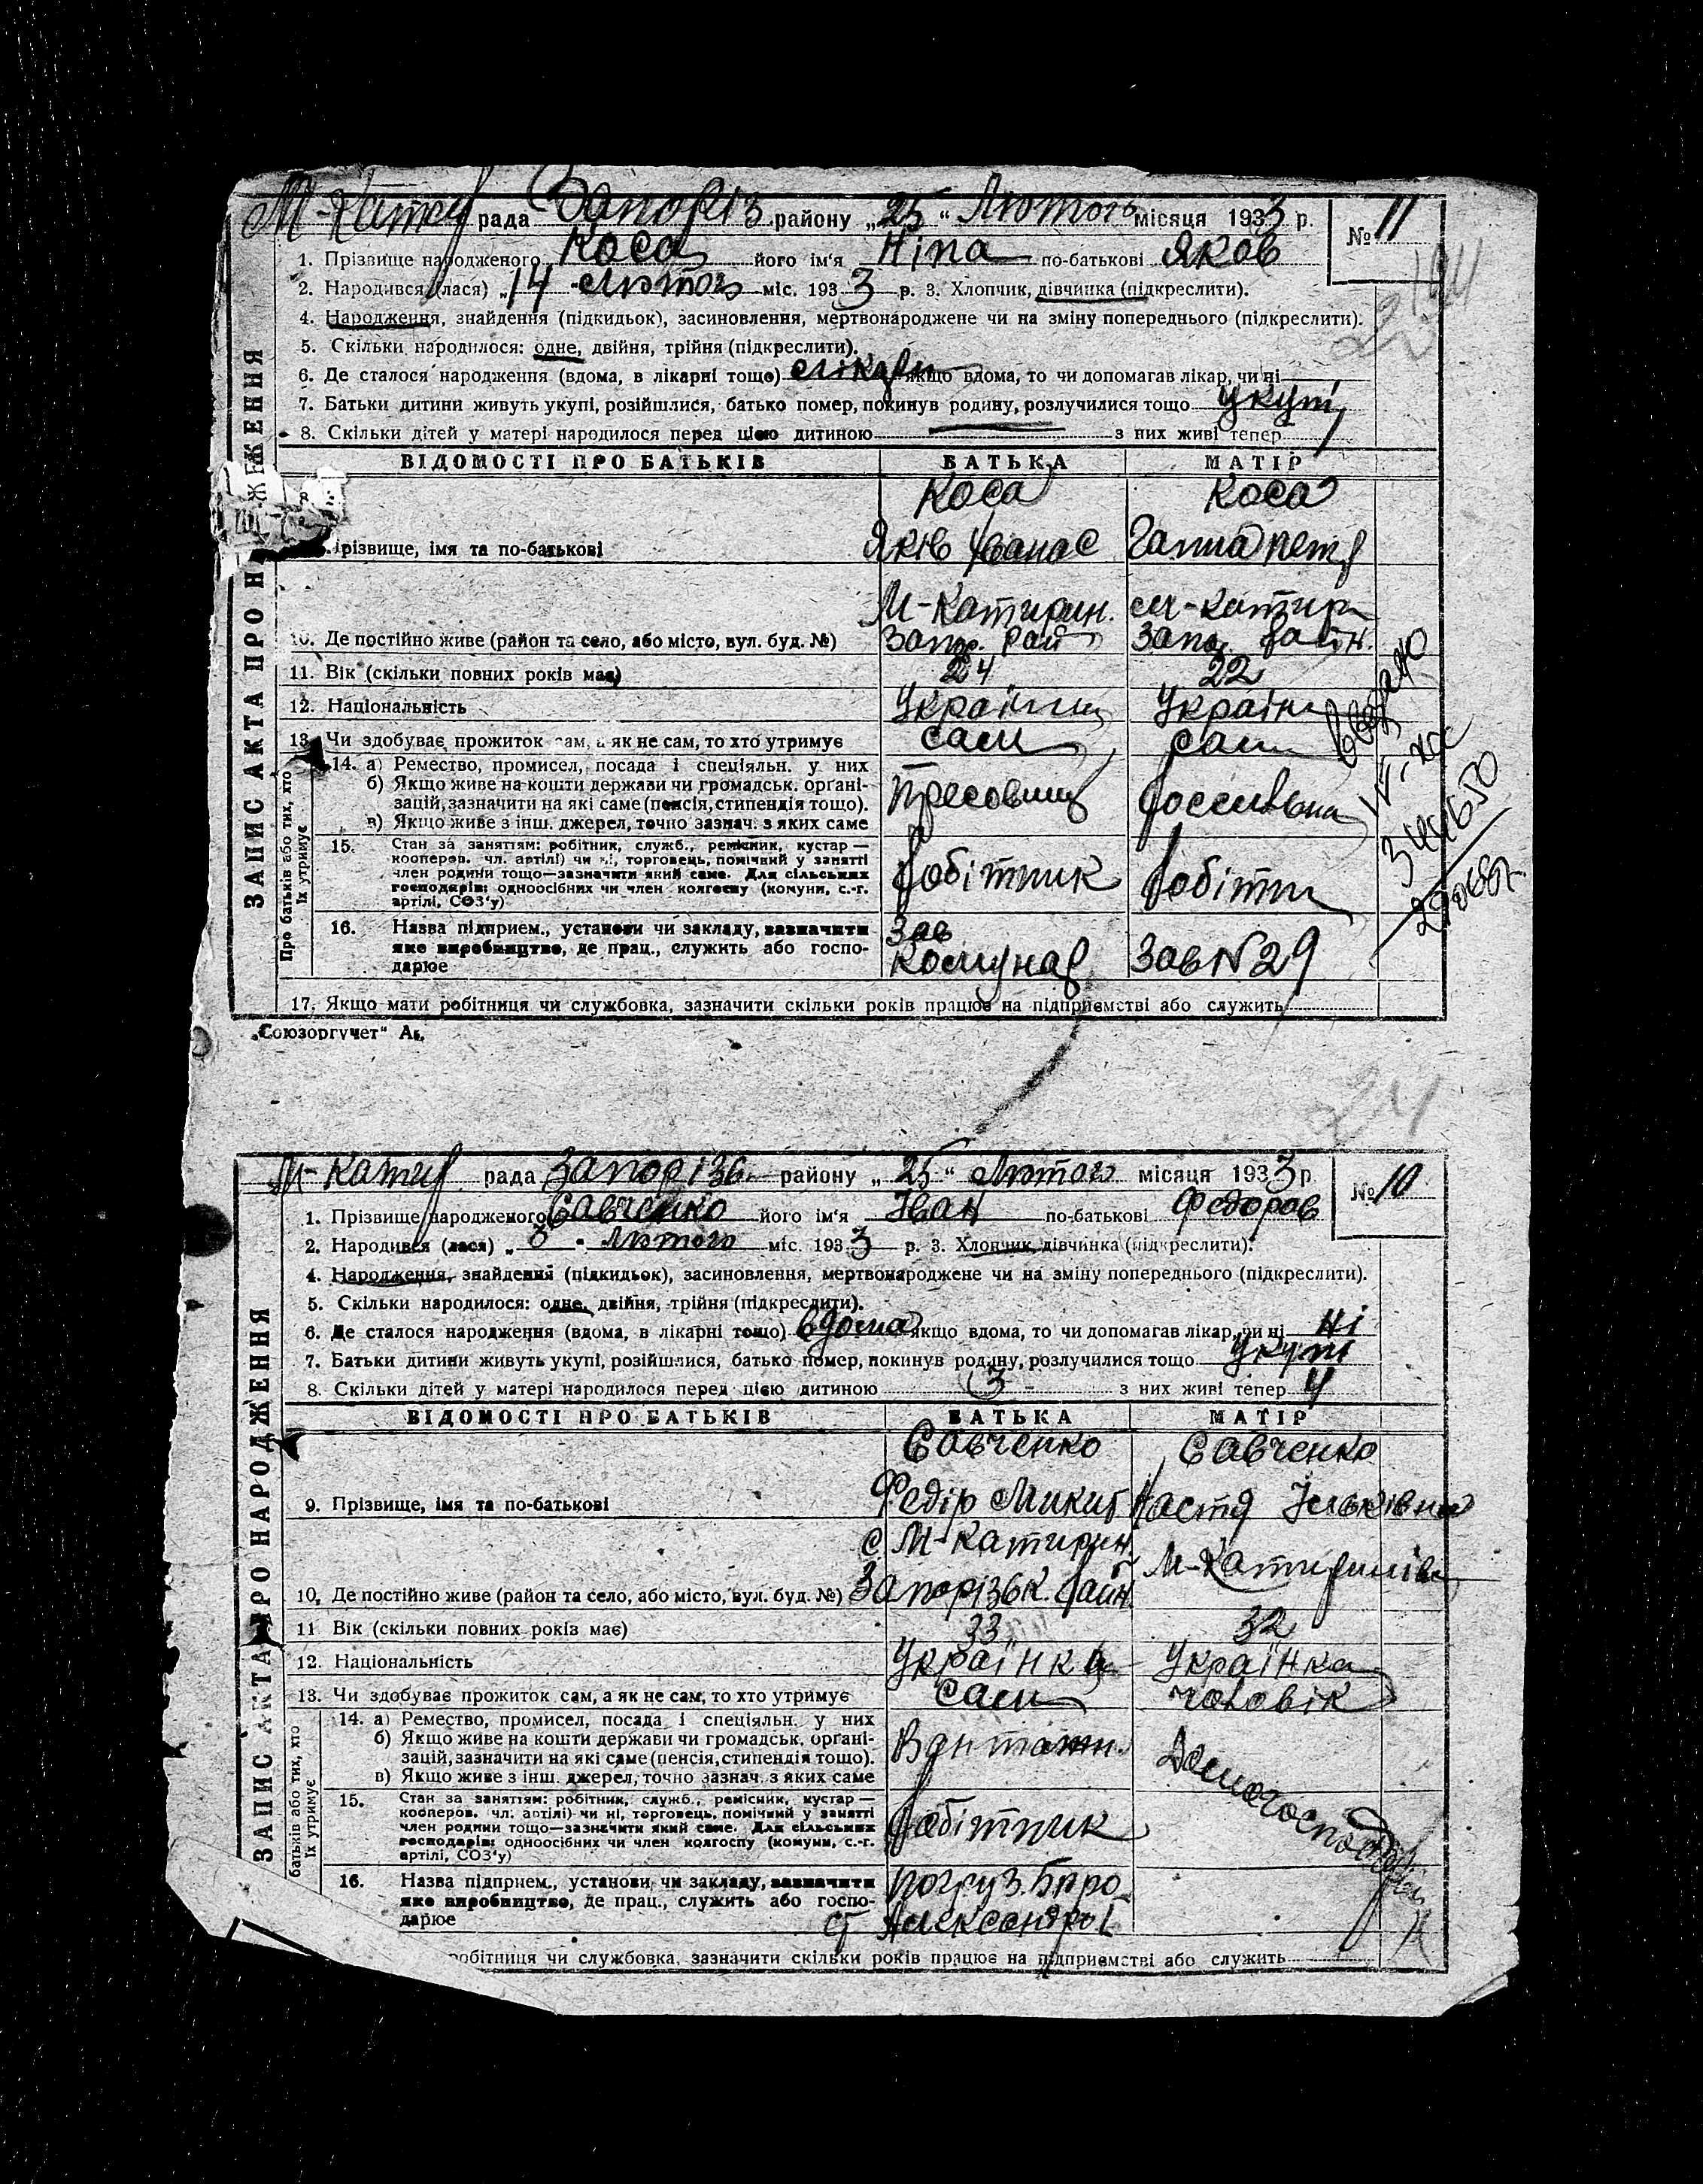 М-Катер рада Запоріз району „25“ Лютого місяця 1933 р. № 11
1. Прізвище народженого Коса його ім'я Ніна по-батькові Яков
2. Народився (лася) „14 Лютого міс. 1933 р. 3. Хлопчик, дівчинка (підкреслити).
4. Народження, знайдення (підкидьок), засиновлення, мертвонароджене чи на зміну попереднього (підкреслити).
5. Скільки народилося: одне, двійня, трійня (підкреслити).
6. Де сталося народження (вдома, в лікарні тощо) лікарн якщо вдома, то чи допомагав лікар, чи ні
7. Батьки дитини живуть укупі, розійшлися, батько помер, покинув родину, розлучилися тощо укупі
8. Скільки дітей у матері народилося перед цією дитиною — з них живі тепер
ЗАПИС АКТА ПРО НАРОДЖЕННЯ
ВІДОМОСТІ ПРО БАТЬКІВ БАТЬКА МАТІР
Коса Коса
Прізвище, імя та по-батькові Яків Іванас Ганна Петр
М-Катирин. М-Катир
10. Де постійно живе (район та село, або місто, вул. буд. №) Запор. рай Запо. райн.
11. Вік (скільки повних років має) 24 22
12. Національність Українц Українк
13. Чи здобуває прожиток сам, а як не сам, то хто утримує сам сам
Про батьків або тих, хто їх утримує
14. а) Ремество, промисел, посада і спеціяльн. у них
б) Якщо живе на кошти держави чи громадськ. орґані-
зацій, зазначити на які саме (пенсія, стипендія тощо). Пресовщ
в) Якщо живе з інш. джерел, точно зазнач. з яких саме
15. Стан за заняттям: робітник, служб., ремісник, кустар—
кооперов. чл. артілі) чи ні, торговець, помічний у занятті
член родини тощо—зазначити який саме. Для сільських робітник робітн
господарів: одноосібних чи член колгоспу (комуни, с.-г.
артілі, СОЗ'у)
16. Назва підприєм., установи чи закладу, зазначити Зав
яке виробництво, де прац., служить або госпо-
дарює Комунар Зав N 29
17. Якщо мати робітниця чи службовка, зазначити скільки років працює на підприємстві або служить
„Союзоргучет“
24
М-Катер рада Запорізь району „25“ Лютого місяця 1933 р № 10
1. Прізвище народженого Савченко його ім'я Іван по-батькові Федоров
2. Народився (лася) „3 Лютого міс. 1933 р. 3. Хлопчик, дівчинка (підкреслити).
4. Народження, знайдення (підкидьок), засиновлення, мертвонароджене чи на зміну попереднього (підкреслити).
5. Скільки народилося: одне, двійня, трійня (підкреслити).
6. Де сталося народження (вдома, в лікарні тощо) вдома якщо вдома, то чи допомагав лікар, чи ні ні
7. Батьки дитини живуть укупі, розійшлися, батько помер, покинув родину, розлучилися тощо укупі
8. Скільки дітей у матері народилося перед цією дитиною 3 з них живі тепер 4
ЗАПИС АКТА ПРО НАРОДЖЕННЯ
ВІДОМОСТІ ПРО БАТЬКІВ БАТЬКА МАТІР
Савченко Савченко
9. Прізвище, імя та по-батькові Федір Микит Настя Ільківна
с М-Катирин. М-Катиринівк
10. Де постійно живе (район та село, або місто, вул. буд. №) Запорізьк. райн.
11 Вік (скільки повних років має) 33 32
12. Національність Українка Українка
13. Чи здобуває прожиток сам, а як не сам, то хто утримує сам чоловік
батьків або тих, хто їх утримує
14. а) Ремество, промисел, посада і спеціяльн. у них
б) Якщо живе на кошти держави чи громадськ. орґані-
зацій, зазначити на які саме (пенсія, стипендія тощо). Домогоспод
в) Якщо живе з інш. джерел, точно зазнач. з яких саме
15. Стан за заняттям: робітник, служб., ремісник, кустар—
кооперов. чл. артілі) чи ні, торговець, помічний у занятті
член родини тощо—зазначити який саме. Для сільських робітник
господарів: одноосібних чи член колгоспу (комуни, с.-г.
артілі, СОЗ'у)
16. Назва підприєм., установи чи закладу, зазначити погруз. Бюро
яке виробництво, де прац., служить або госпо-
дарює ст Александров
робітниця чи службовка, зазначити скільки років працює на підприємстві або служить